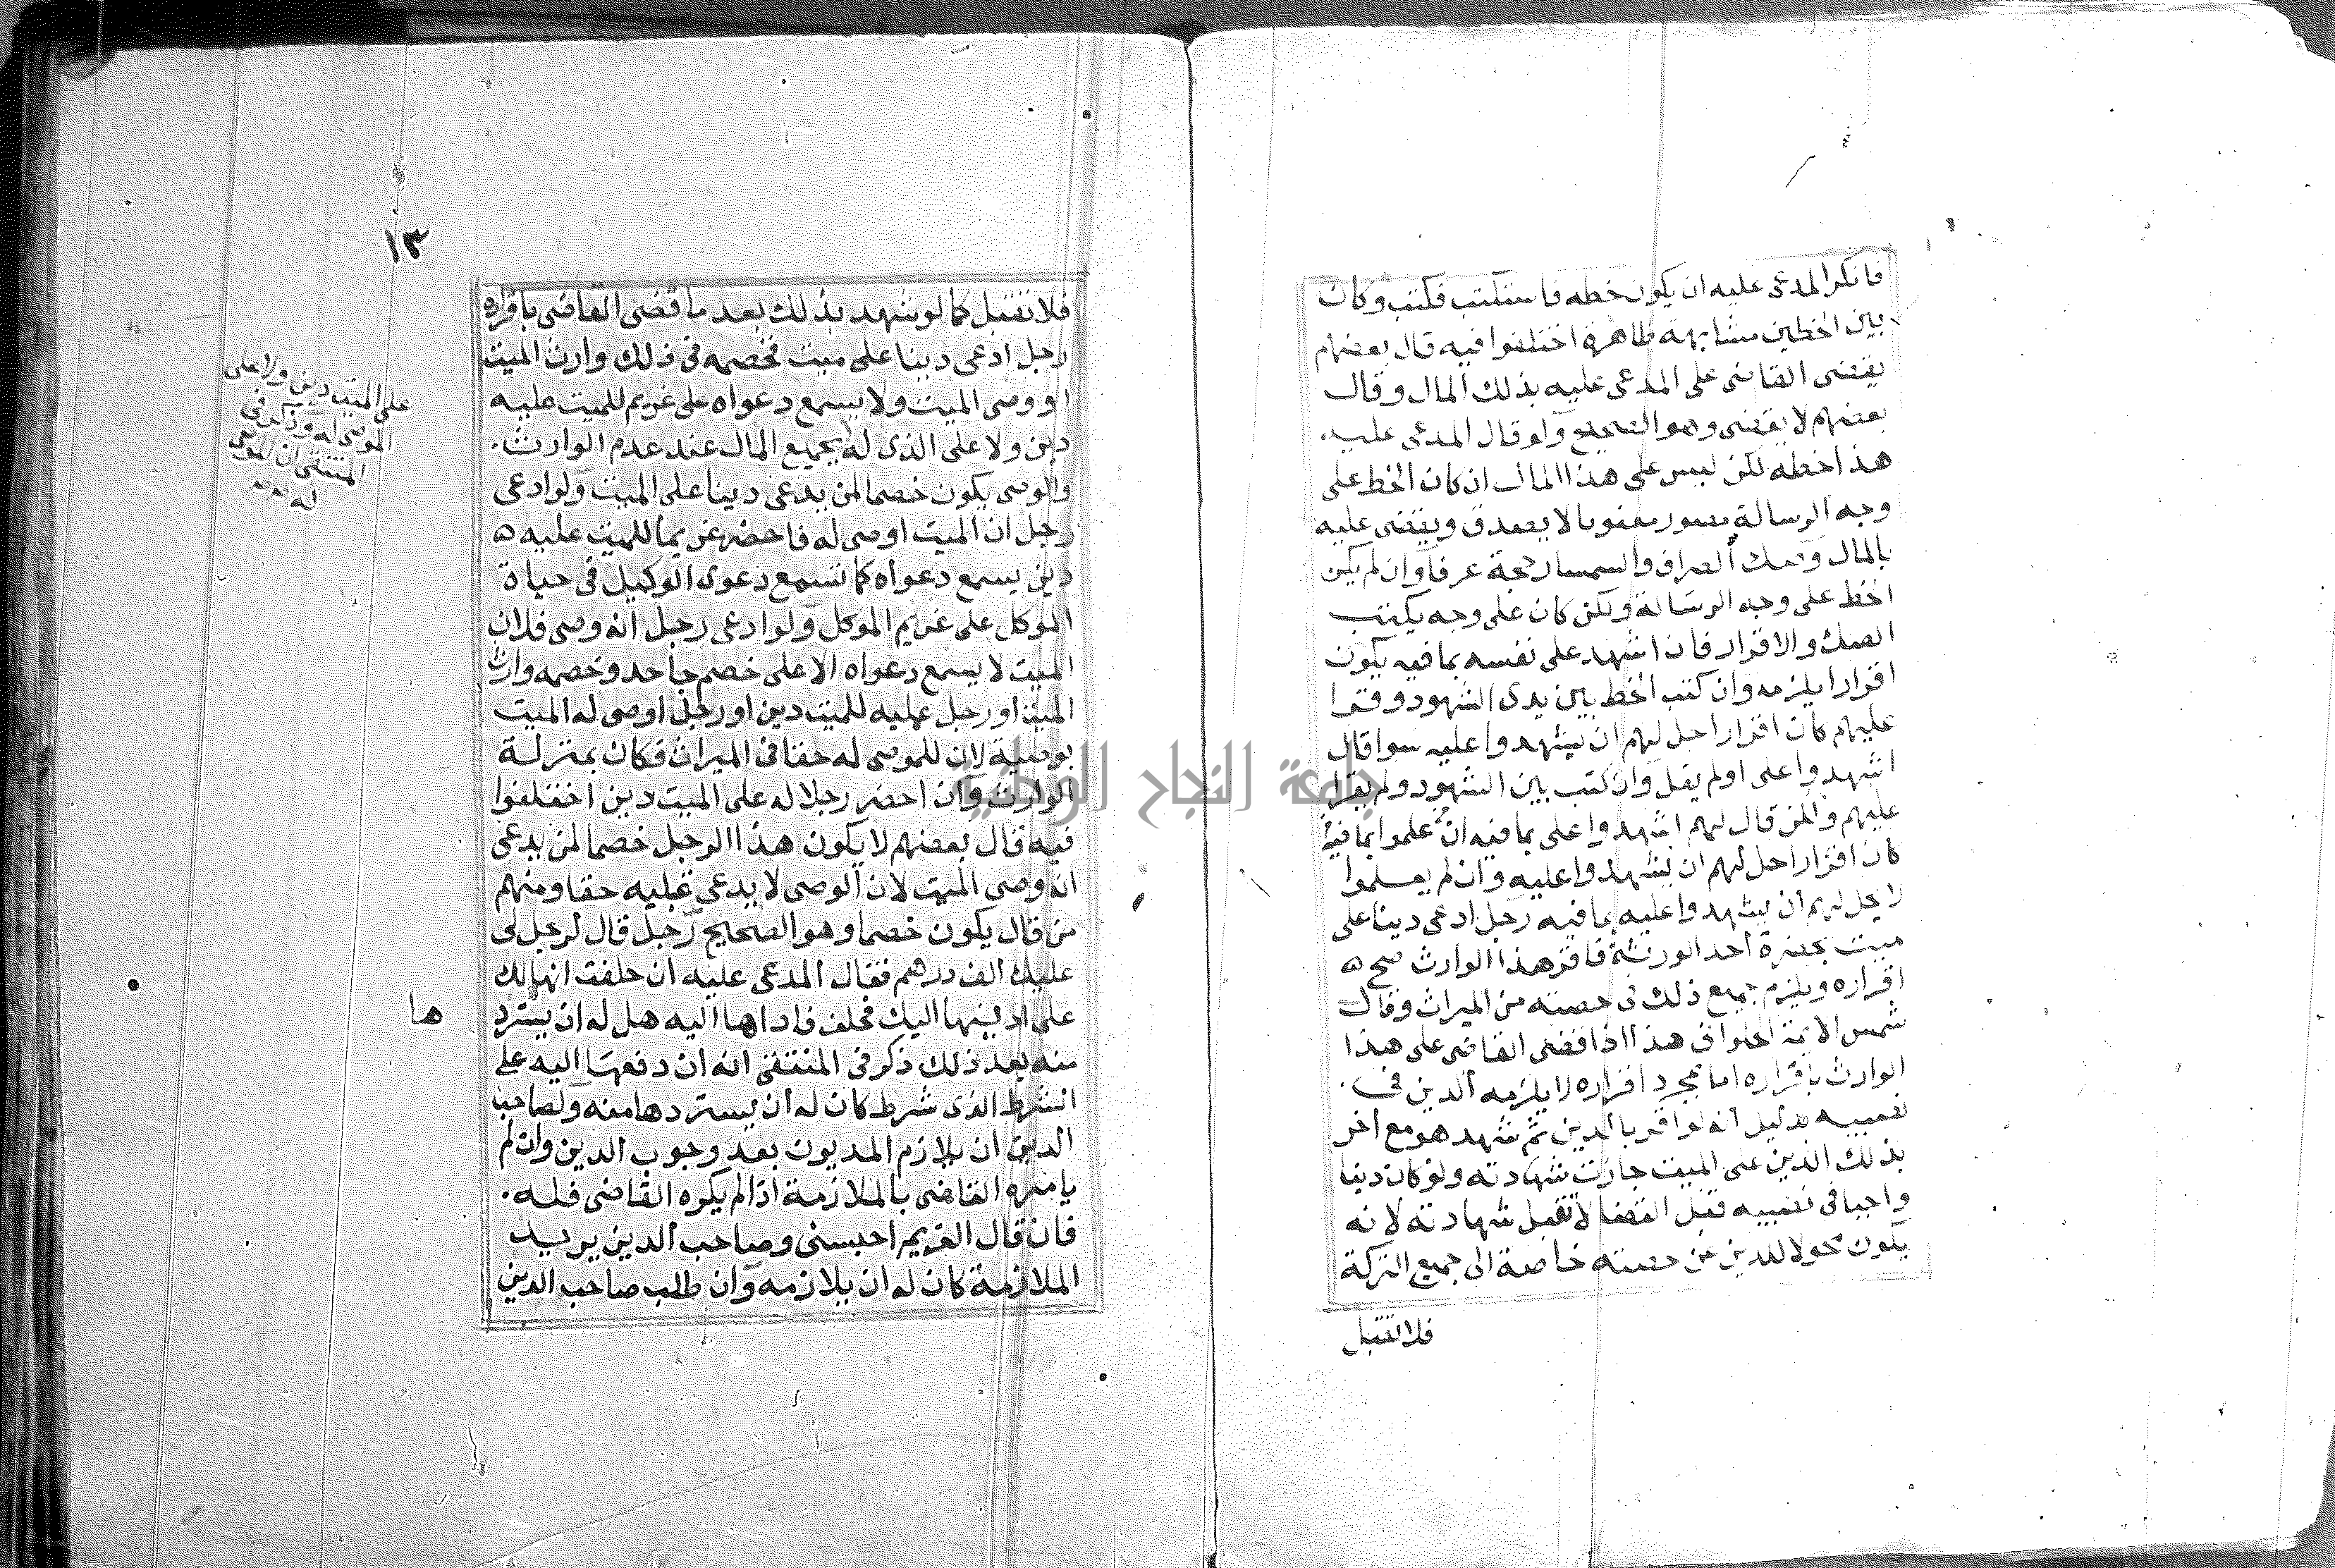 فانكر المدعى عليه ان يكون خطه فاستكتب فكتب وكان
بين الخطين مشابهة ظاهرة اختلفوا فيه قال بعضهم
يقضى القاضى على المدعى عليه بذلك المال وقال
بعضهم لا يقضى وهو الصحيح ولو قال المدعى عليه
هذا خطه لكن ليس على هذا المال ان كان الخط على
وجه الرسالة مصدر معنونا لا يصدق ويقضى عليه
بالمال وصك الصراف والسمسار حجة عرفا وان لم يكن
الخط على وجه الرسالة ولكن كان على وجه يكتب
الصك والاقرار فان اشهد على نفسه بما فيه يكون
اقرارا يلزمه وان كتب الخط بين يدى الشهود وقرا
عليهم كان اقرارا حل لهم ان يشهدوا عليه سوا قال
اشهدوا على او لم يقل وان كتب بين الشهود ولم يقرا
عليهم ولكن قال لهم اشهدوا على بما فيه ان علموا بما فيه
كان اقرارا حل لهم ان يشهدوا عليه وان لم يعلموا
لا يحل لهم ان يشهدوا عليه بما فيه رجل ادعى دينا على
ميت بحضرة احد الورثة فاقر هذا الوارث صح
اقراره ويلزم جميع ذلك فى حصته من الميراث وقال
شمس الائمة الحلوانى هذا اذا قضى القاضى على هذا
الوارث باقراره اما بمجرد اقراره لا يلزمه الدين فى
نصيبه بدليل انه لو اقر بالدين ثم شهد هو مع اخر
بذلك الدين على الميت جازت شهادته ولو كان دينا
واجبا فى نصيبه قبل القضا لا تقبل شهادته لانه
يكون محولا للدين من حصته خاصة الى جميع التركة
فلا تقبل
١٣
فلا تقبل كما لو شهد بذلك بعد ما قضى القاضى باقراره
رجل ادعى دينا على ميت فخصمه فى ذلك وارث الميت
او وصى الميت ولا يسمع دعواه على غريم للميت عليه
دين ولا على الذى له جميع المال عند عدم الوارث
والوصى يكون خصما لمن يدعى دينا على الميت ولو ادعى
رجل ان الميت اوصى له فاحضر غريما للميت عليه
دين يسمع دعواه كما تسمع دعوى الوكيل فى حياة
الموكل على غريم الموكل ولو ادعى رجل انه وصى فلان
الميت لا يسمع دعواه الا على خصم جاحد وخصمه وارث
الميت او رجل عليه للميت دين او رجل اوصى له الميت
بوصية لان للموصى له حقا فى الميراث فكان بمنزلة
الوارث وان احضر رجلا له على الميت دين اختلفوا
فيه قال بعضهم لا يكون هذا الرجل خصما لمن يدعى
انه وصى الميت لان الوصى لا يدعى عليه حقا ومنهم
من قال يكون خصما وهو الصحيح رجل قال لرجل لى
عليك الف درهم فقال المدعى عليه ان حلفت انها لك
على اديتها اليك فحلف فاداها اليه هل له ان يسترد
ها
منه بعد ذلك ذكر فى المنتقى انه ان دفعها اليه على
الشرط الذى شرط كان له ان يستردها منه ولصاحب
الدين ان يلازم المديون بعد وجوب الدين وان لم
يامره القاضى بالملازمة اذا لم يكره القاضى فلسه
فان قال الغريم احبسنى وصاحب الدين يريد
الملازمة كان له ان يلازمه وان طلب صاحب الدين
جامعة النجاح الوطنية